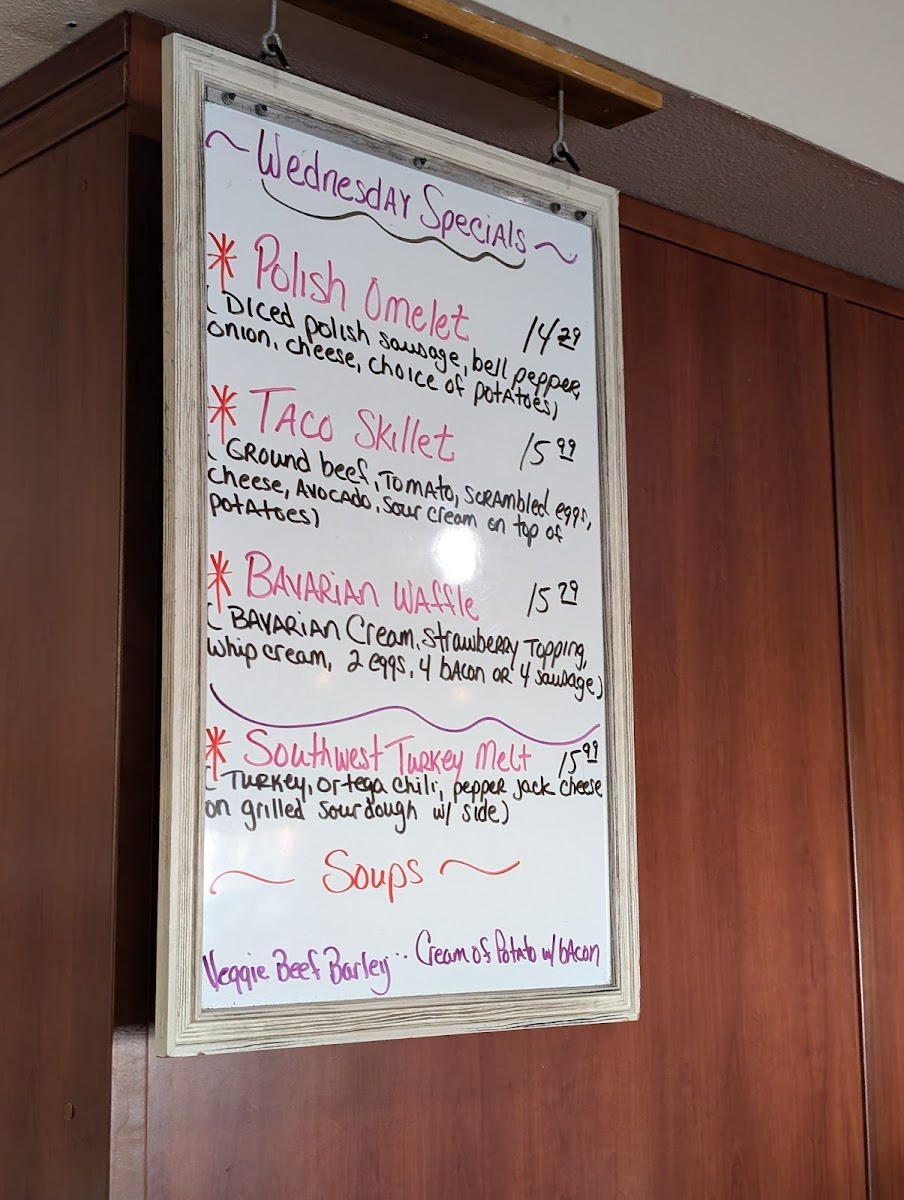 ~ Wednesday Specials ~
* Polish Omelet 14.29
(Diced polish sausage, bell pepper,
onion, cheese, choice of potatoes)
* Taco Skillet 15.99
(Ground beef, Tomato, scrambled eggs,
cheese, Avocado, sour cream on top of
potatoes)
* Bavarian Waffle 15.29
(Bavarian Cream, Strawberry Topping,
whip cream, 2 eggs, 4 bacon or 4 sausage)
* Southwest Turkey Melt 15.99
(Turkey, ortega chili, pepper jack cheese
on grilled sourdough w/ side)
~ Soups ~
Veggie Beef Barley .. Cream of Potato w/ bacon